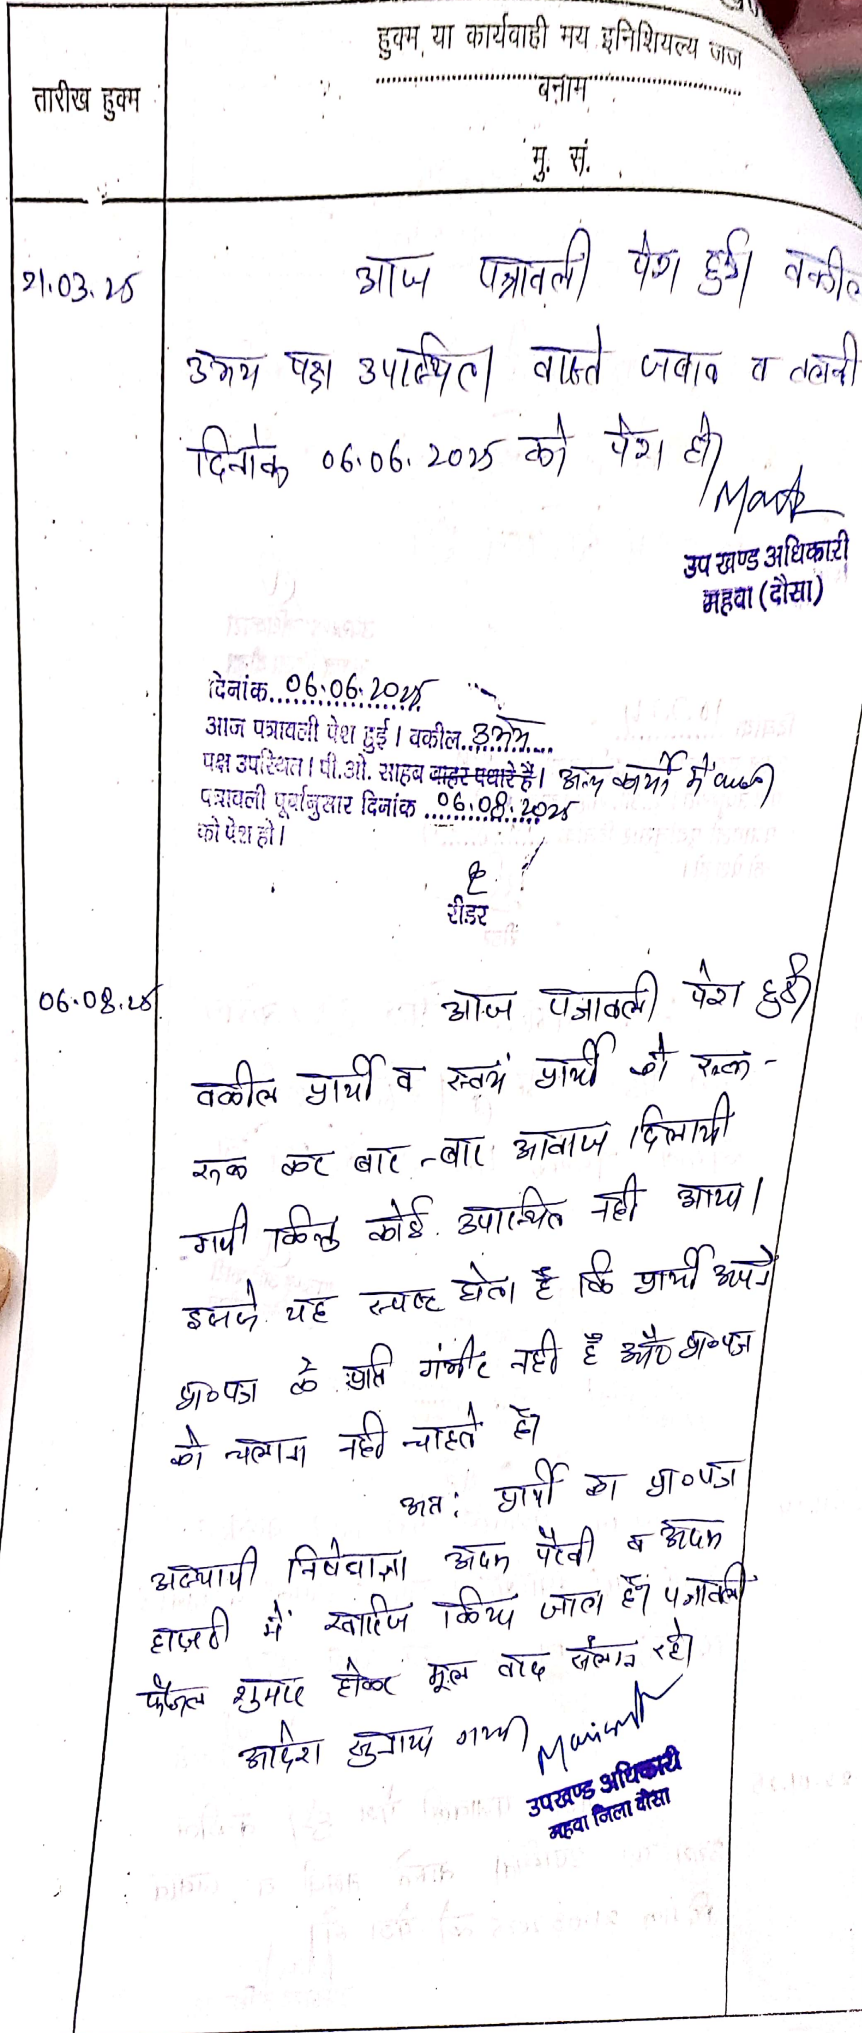 हुक्म या कार्यवाही मय इनिशियल्य जज
तारीख हुक्म
बनाम
मु. सं.
21.03.25
आज पत्रावली पेश हुई। वकील
उभय पक्ष उपस्थित। वास्ते जबाव व तलबी
दिनांक 06.06.2025 को पेश हो।
उप खण्ड अधिकारी
महवा (दौसा)
दिनांक..06.06.2025
आज पत्रावली पेश हुई। वकील..उभय...
पक्ष उपस्थित। पी.ओ. साहब बाहर पधारे है। अन्य कार्यो में व्यस्त।
पत्रावली पूर्वानुसार दिनांक ..06.08.2025
को पेश हो।
रीडर
06.08.25
आज पत्रावली पेश हुई।
वकील प्रार्थी व स्वयं प्रार्थी को रूक-
रूक कर बार-बार आवाज दिलायी
गयी किन्तु कोई उपस्थित नही आया।
इससे यह स्पष्ट होता है कि प्रार्थी अपने
प्रा०पत्र के प्रति गंभीर नही है और प्रा०पत्र
को चलाना नही चाहते है।
अतः प्रार्थी का प्रा०पत्र
अस्थायी निषेधाज्ञा अदम पैरवी व अदम
हाज़री में खारिज किया जाता है। पत्रावली
फैसल शुमार होकर मूल वाद संलग्न रहे।
आदेश सुनाया गया।
उपखण्ड अधिकारी
महवा जिला दौसा